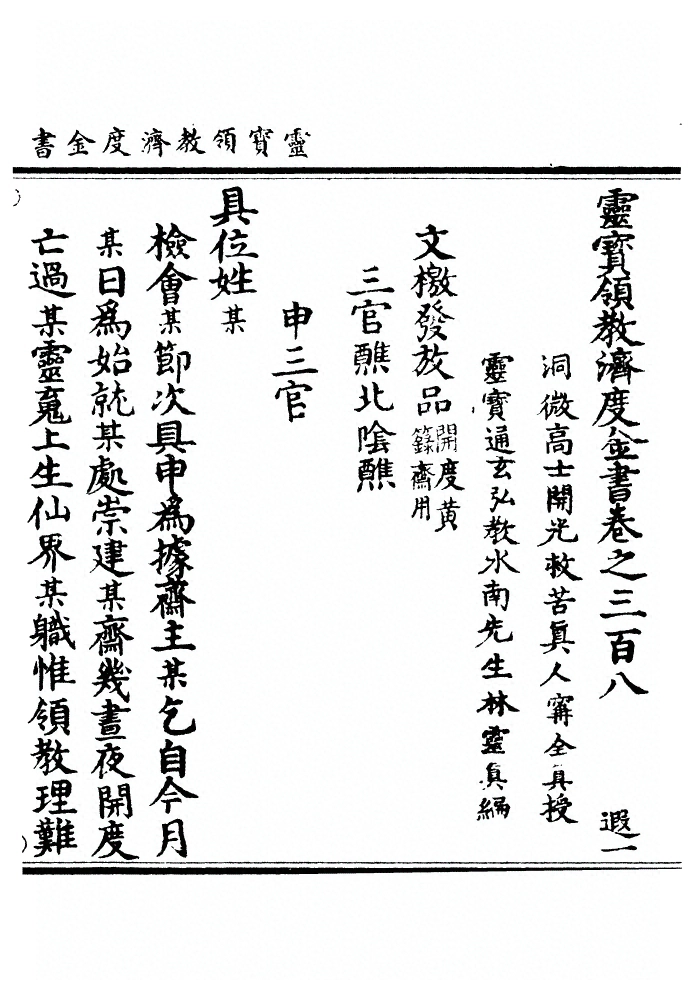 靈寶領教濟度金書
靈寶領教濟度金書卷之三百八　遐一
洞微高士開光救苦眞人甯全眞授
靈寶通玄弘教水南先生林靈眞編
文檄發放品開度黃籙齋用
三官醮北陰醮
申三官
具位姓某
檢會某節次具申爲據齋主某乞自今月
某日爲始就某處崇建某齋幾晝夜開度
亡過某靈䰟上生仙界某職惟領教理難